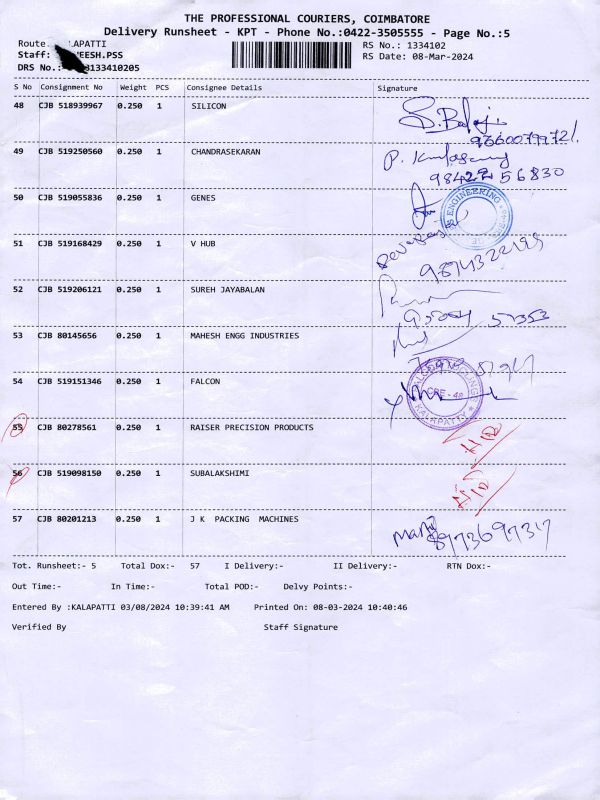 THE PROFESSIONAL COURIERS, COIMBATORE
Delivery Runsheet - KPT - Phone No.:0422-3505555 - Page No.:5
Route. ALAPATTI
RS No.: 1334102
Staff: EESH.PSS
RS Date: 08-Mar-2024
DRS No.: 3133410205
S No Consignment No Weight PCS Consignee Details Signature
48 CJB 518939967 0.250 1 SILICON
49 CJB 519250560 0.250 1 CHANDRASEKARAN
98422 56830
50 CJB 519055836 0.250 1 GENES
ENGINEERING
51 CJB 519168429 0.250 1 V HUB
52 CJB 519206121 0.250 1 SUREH JAYABALAN
53 CJB 80145656 0.250 1 MAHESH ENGG INDUSTRIES
54 CJB 519151346 0.250 1 FALCON
CBE - 48
KALAPATTY
55 CJB 80278561 0.250 1 RAISER PRECISION PRODUCTS
56 CJB 519098150 0.250 1 SUBALAKSHIMI
57 CJB 80201213 0.250 1 J K PACKING MACHINES
Tot. Runsheet:- 5 Total Dox:- 57 I Delivery:- II Delivery:- RTN Dox:-
Out Time:- In Time:- Total POD:- Delvy Points:-
Entered By :KALAPATTI 03/08/2024 10:39:41 AM Printed On: 08-03-2024 10:40:46
Verified By Staff Signature